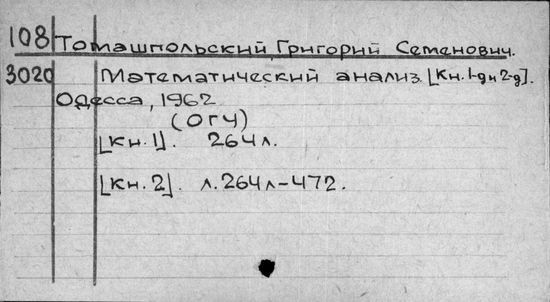 108 Томашпольский, Григорий Семенович.
3020 Математический анализ. [Кн. 1-я и 2-я].
Одесса, 1962
(ОГУ)
[Кн. 1]. 264 л.
[Кн. 2]. л. 264л-472.